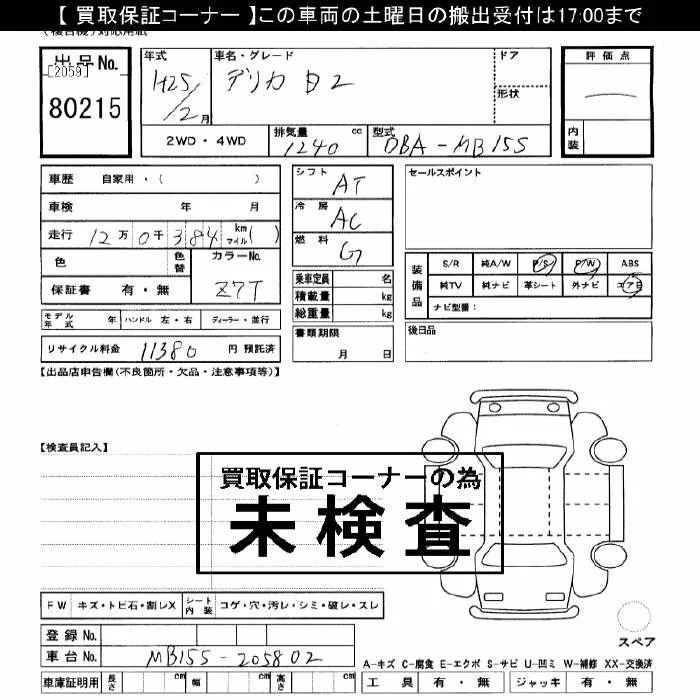 【 買取保証コーナー 】この車両の土曜日の搬出受付は17:00まで
出品No.
[2059]
80215
年式 車名・グレード ドア
H25/2月 デリカ D2
形状
評価点
内装
2WD・4WD 排気量 1240 cc 型式 DBA-MB15S
車歴 自家用・( )
車検 年 月
走行 12万0千384 km マイル( )
色 色替 カラーNo.
保証書 有・無 Z7T
シフト AT
冷房 AC
燃料 G
乗車定員 名
積載量 kg
総重量 kg
セールスポイント
装備品 S/R 純A/W P/S P/W ABS
純TV 純ナビ 革シート 外ナビ エアB
ナビ型番:
モデル年式 年 ハンドル 左・右 ディーラー・並行
書類期限
月 日
後日品
リサイクル料金 11380 円 預託済
【出品店申告欄(不良箇所・欠品・注意事項等)】
【検査員記入】
買取保証コーナーの為
未検査
FW キズ・トビ石・割レX シート内装 コゲ・穴・汚レ・シミ・破レ・スレ
スペア
登録No.
車台No. MB15S-205802
A-キズ C-腐食 E-エクボ S-サビ U-凹ミ W-補修 XX-交換済
車庫証明用 長さ cm 幅 cm 高さ cm
工具 有・無 ジャッキ 有・無